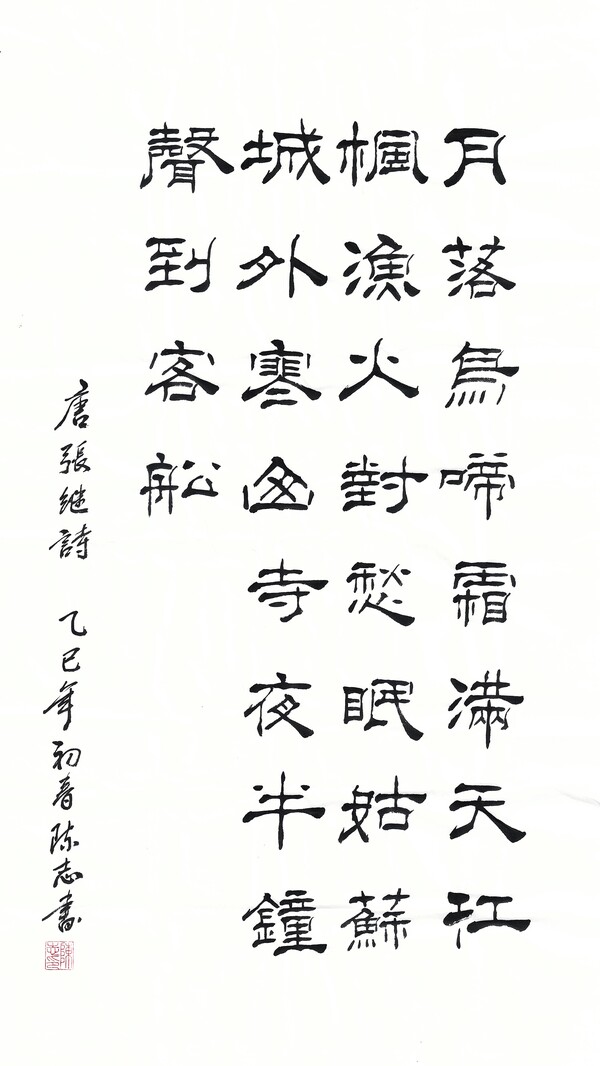 月落烏啼霜滿天江
楓漁火對愁眠姑蘇
城外寒山寺夜半鐘
聲到客船
唐張继詩 乙巳年初春陈志書